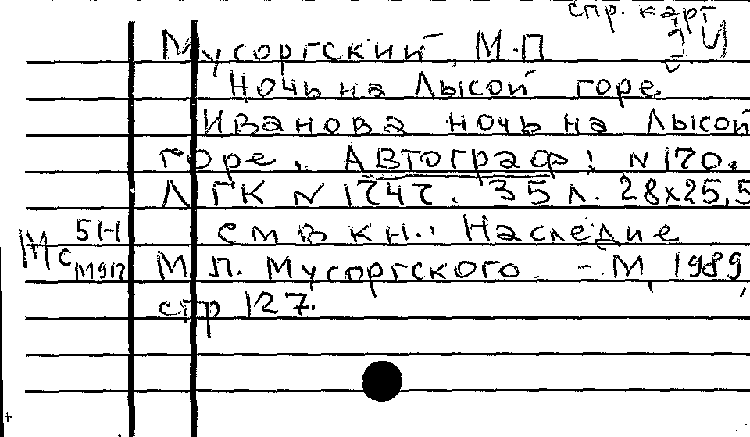 спр. карт
Мусоргский, М.П
Ночь на Лысой горе.
Иванова ночь на Лысой
горе. Автограф: N 170.
ЛГК N 1747. 35 л. 28х25,5
см в кн.: Наследие
5Н
Мс М911
М.П. Мусоргского. - М, 1989,
стр 127.